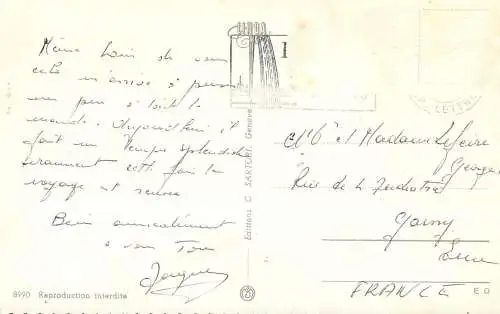 Même loin de vous
cela m'arrive à penser
un peu à tout le
monde. Aujourd'hui, il
fait un temps splendide
vraiment cette fois le
voyage est
Bien amicalement
à vous Tous
Jacques
8990 Reproduction interdite
Editions C. SARTORI, Genève
et Madame Lefèvre
Georges
Rue de l'Industrie
Gasny
Eure
FRANCE
E D